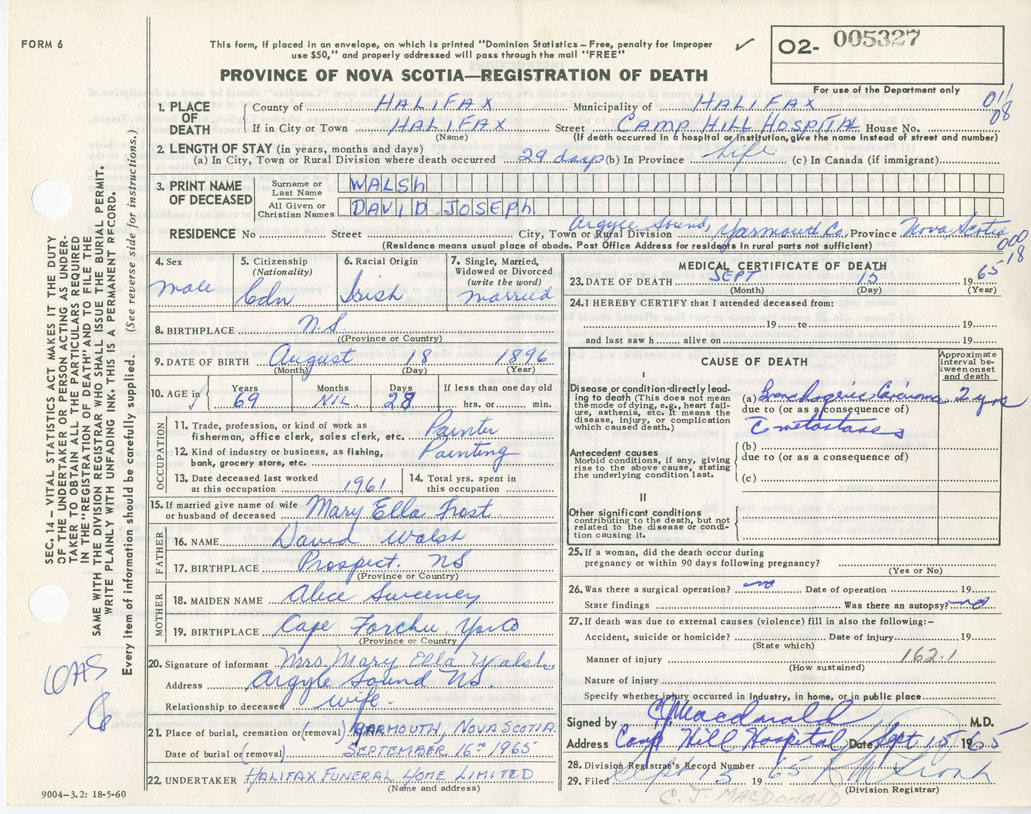 FORM 6
This form, if placed in an envelope, on which is printed "Dominion Statistics – Free, penalty for improper
use $50," and properly addressed will pass through the mail "FREE"
✓
O2- 005327
For use of the Department only
PROVINCE OF NOVA SCOTIA—REGISTRATION OF DEATH
1. PLACE OF DEATH
County of HALIFAX Municipality of HALIFAX
011
08
If in City or Town HALIFAX Street CAMP HILL HOSPITAL House No.
(Name) (If death occurred in hospital or institution, give the name instead of street and number)
2. LENGTH OF STAY (in years, months and days)
(a) In City, Town or Rural Division where death occurred 29 days (b) In Province Life (c) In Canada (if immigrant)
3. PRINT NAME OF DECEASED
Surname or Last Name WALSH
All Given or Christian Names DAVID JOSEPH
RESIDENCE No Street City, Town or Rural Division Argyle Sound, Yarmouth Co, Province Nova Scotia
(Residence means usual place of abode. Post Office Address for residents in rural parts not sufficient)
000
18
4. Sex
male
5. Citizenship
(Nationality)
Cdn
6. Racial Origin
Irish
7. Single, Married,
Widowed or Divorced
(write the word)
married
8. BIRTHPLACE N.S
(Province or Country)
9. DATE OF BIRTH August 18 1896
(Month) (Day) (Year)
10. AGE in
Years 69
Months NIL
Days 28
If less than one day old
hrs. or min.
OCCUPATION
11. Trade, profession, or kind of work as
fisherman, office clerk, sales clerk, etc. Painter
12. Kind of industry or business, as fishing,
bank, grocery store, etc. Painting
13. Date deceased last worked
at this occupation 1961
14. Total yrs. spent in
this occupation
15. If married give name of wife
or husband of deceased Mary Ella Frost
FATHER
16. NAME David Walsh
17. BIRTHPLACE Prospect. NS
(Province or Country)
MOTHER
18. MAIDEN NAME Alice Sweeney
19. BIRTHPLACE Cape Forchu, Yar Co
(Province or Country)
20. Signature of informant Mrs. Mary Ella Walsh
Address Argyle Sound NS.
Relationship to deceased wife.
21. Place of burial, cremation or (removal) YARMOUTH, NOVA SCOTIA.
Date of burial or (removal) SEPTEMBER 16TH 1965
22. UNDERTAKER HALIFAX FUNERAL HOME LIMITED
(Name and address)
MEDICAL CERTIFICATE OF DEATH
23. DATE OF DEATH SEPT 15 1965
(Month) (Day) (Year)
24. I HEREBY CERTIFY that I attended deceased from:
19 to 19
and last saw h alive on 19
CAUSE OF DEATH
Approximate
interval be-
tween onset
and death
I
Disease or condition directly lead-
ing to death (This does not mean
the mode of dying, e.g., heart fail-
ure, asthenia, etc. It means the
disease, injury, or complication
which caused death.)
(a) Bronchogenic Carcinoma 2 yrs
due to (or as a consequence of)
C metastases
Antecedent causes
Morbid conditions, if any, giving
rise to the above cause, stating
the underlying condition last.
(b)
due to (or as a consequence of)
(c)
II
Other significant conditions
contributing to the death, but not
related to the disease or condi-
tion causing it.
25. If a woman, did the death occur during
pregnancy or within 90 days following pregnancy?
(Yes or No)
26. Was there a surgical operation? no Date of operation 19
State findings Was there an autopsy? no
27. If death was due to external causes (violence) fill in also the following:–
Accident, suicide or homicide? Date of injury 19
(State which)
Manner of injury 162.1
(How sustained)
Nature of injury
Specify whether injury occurred in industry, in home, or in public place
Signed by CJ Macdonald M.D.
Address Camp Hill Hospital Date Sept 15 1965
28. Division Registrar's Record Number
29. Filed Sept 15 1965
(Division Registrar)
C. J. MACDONALD
SEC. 14 – VITAL STATISTICS ACT MAKES IT THE DUTY
OF THE UNDERTAKER OR PERSON ACTING AS UNDER-
TAKER TO OBTAIN ALL THE PARTICULARS REQUIRED
IN THE "REGISTRATION OF DEATH" AND TO FILE THE
SAME WITH THE DIVISION REGISTRAR WHO SHALL ISSUE THE BURIAL PERMIT.
WRITE PLAINLY WITH UNFADING INK. THIS IS A PERMANENT RECORD.
Every item of information should be carefully supplied. (See reverse side for instructions.)
9004-3.2: 18-5-60